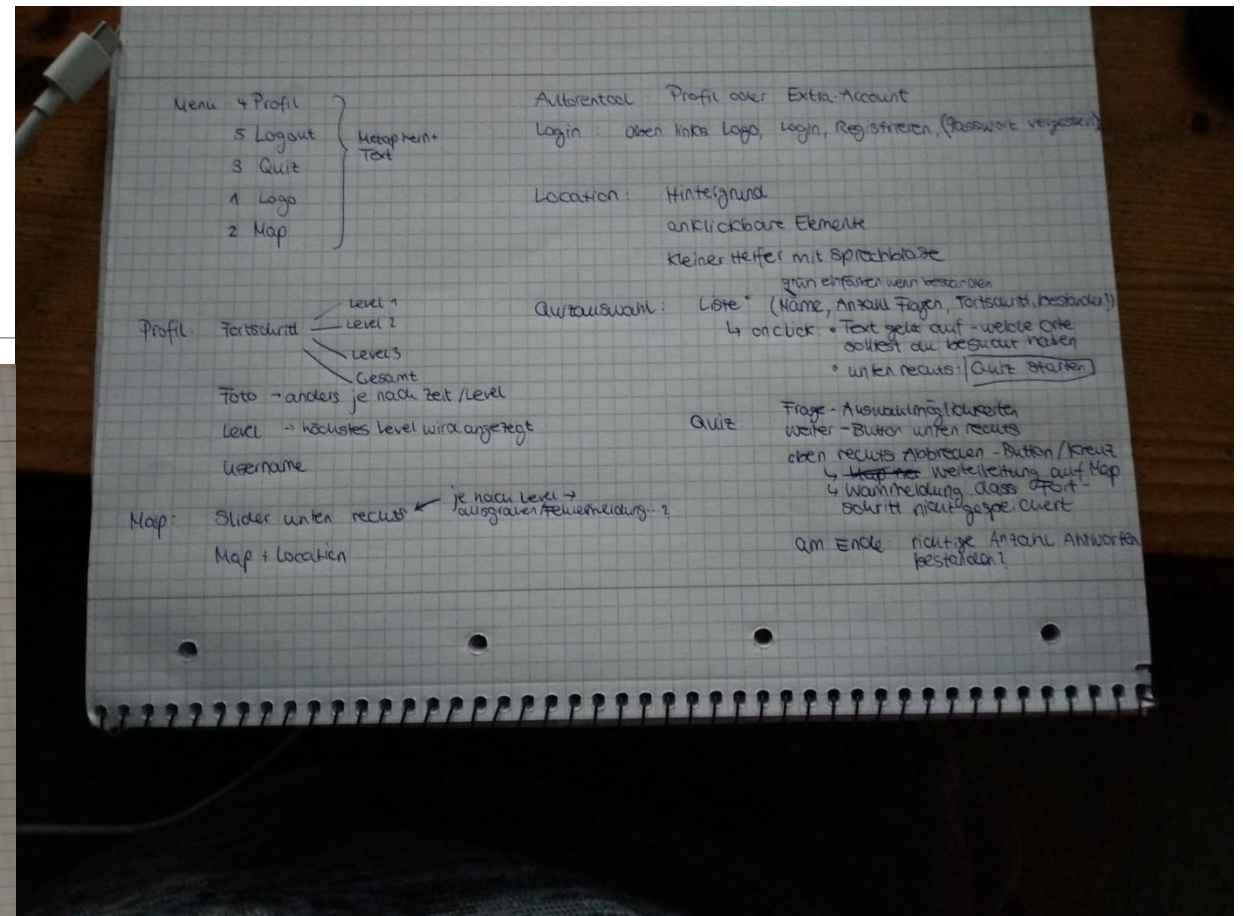 Menü 4 Profil
5 Logout
3 Quiz
1 Logo
2 Map
Metaphern+
Text
Profil: Fortschritt
Level 1
Level 2
Level 3
Gesamt
Foto → anders je nach Zeit/Level
Level → höchstes Level wird angezeigt
Username
Map: Slider unten rechts ← je nach Level →
ausgraben/Fehlermeldung...?
Map + Location
Autorentool Profil oder Extra-Account
Login: oben links Logo, Login, Registrieren, (Passwort vergessen)
Location: Hintergrund
anklickbare Elemente
kleiner Helfer mit Sprechblase
grün einfärben wenn bestanden
Quizauswahl: Liste (Name, Anzahl Fragen, Fortschritt, bestanden?)
↳ onclick: • Text geht auf - welche Orte
solltest du besucht haben
• unten rechts: Quiz starten
Quiz: Frage - Auswahlmöglichkeiten
Weiter - Button unten rechts
oben rechts Abbrechen - Button/Kreuz
↳ Weiterleitung auf Map
↳ Warnmeldung, dass Fort-
schritt nicht gespeichert
am Ende: richtige Anzahl Antworten
bestanden?